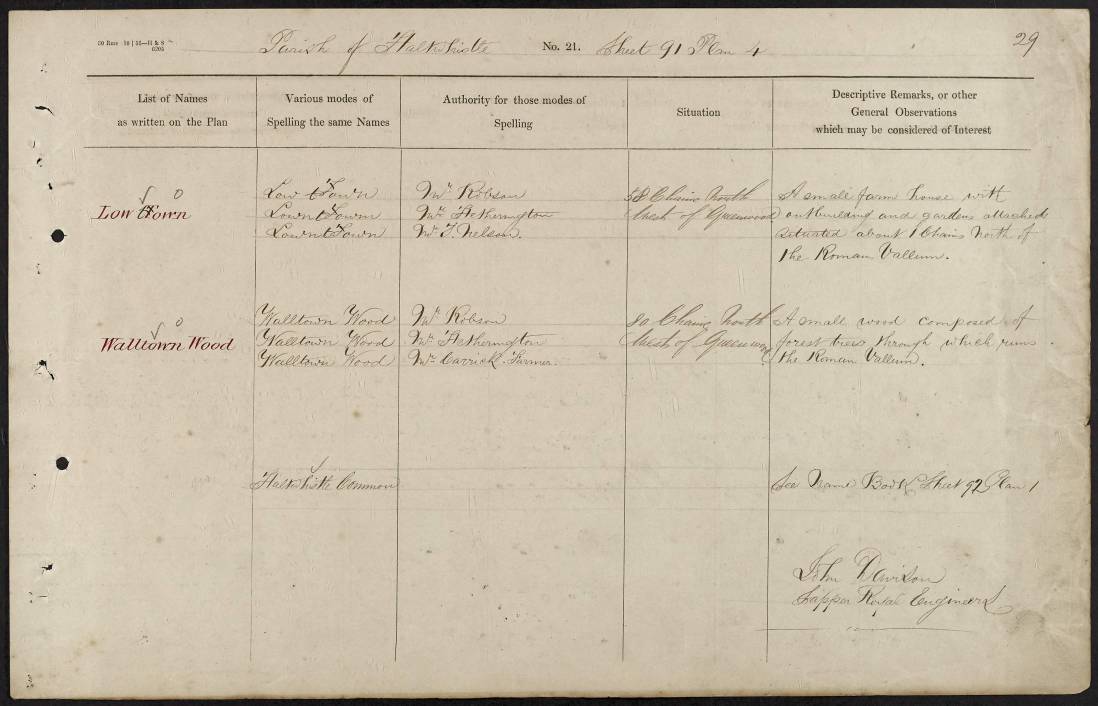 Parish of Haltwhistle No. 21. Sheet 91 Plan 4
29
List of Names
as written on the Plan
Various modes of
Spelling the same Names
Authority for those modes of
Spelling
Situation
Descriptive Remarks, or other
General Observations
which may be considered of Interest
Low Town
Low Town
Lown Town
Lown Town
Mr. Robson
Mr. Hetherington
Mr. T. Nelson.
58 Chains North
West of Greenwood
A small farm house with
outbuilding and gardens attached
situated about 1 Chains North of
the Roman Vallum.
Walltown Wood
Walltown Wood
Walltown Wood
Walltown Wood
Mr. Robson
Mr. Hetherington
Mr. Carrick. Farmer.
80 Chains North
West of Greenwood
A small wood composed of
forest trees through which runs
the Roman Vallum.
Haltwhistle Common
See Name Book Sheet 92 Plan 1
John Davison
Sapper Royal Engineers